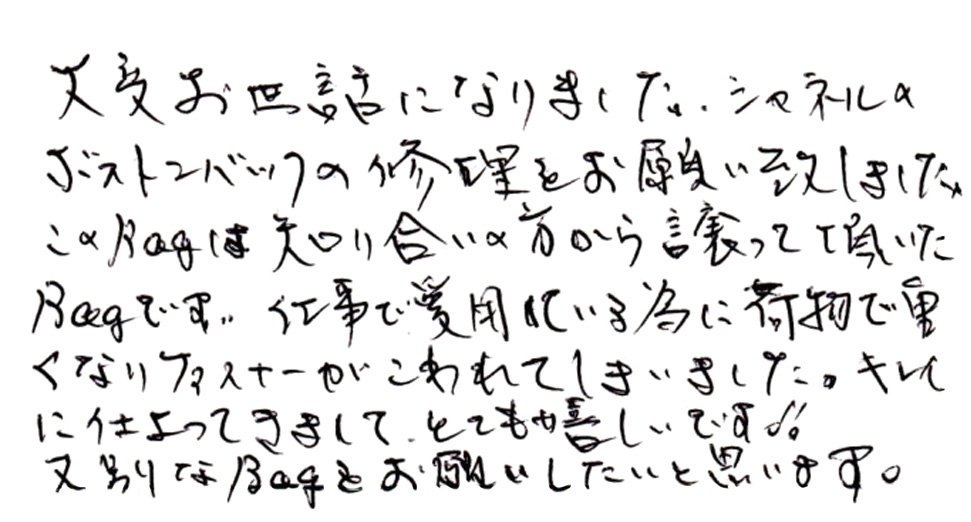 大変お世話になりました。シャネルの
ボストンバックの修理をお願い致しました。
このBagは知り合いの方から譲って頂いた
Bagです。仕事で愛用している為に荷物で重
くなりファスナーがこわれてしまいました。キレイ
に仕上ってきまして、とても嬉しいです!!
又別なBagをお願いしたいと思います。